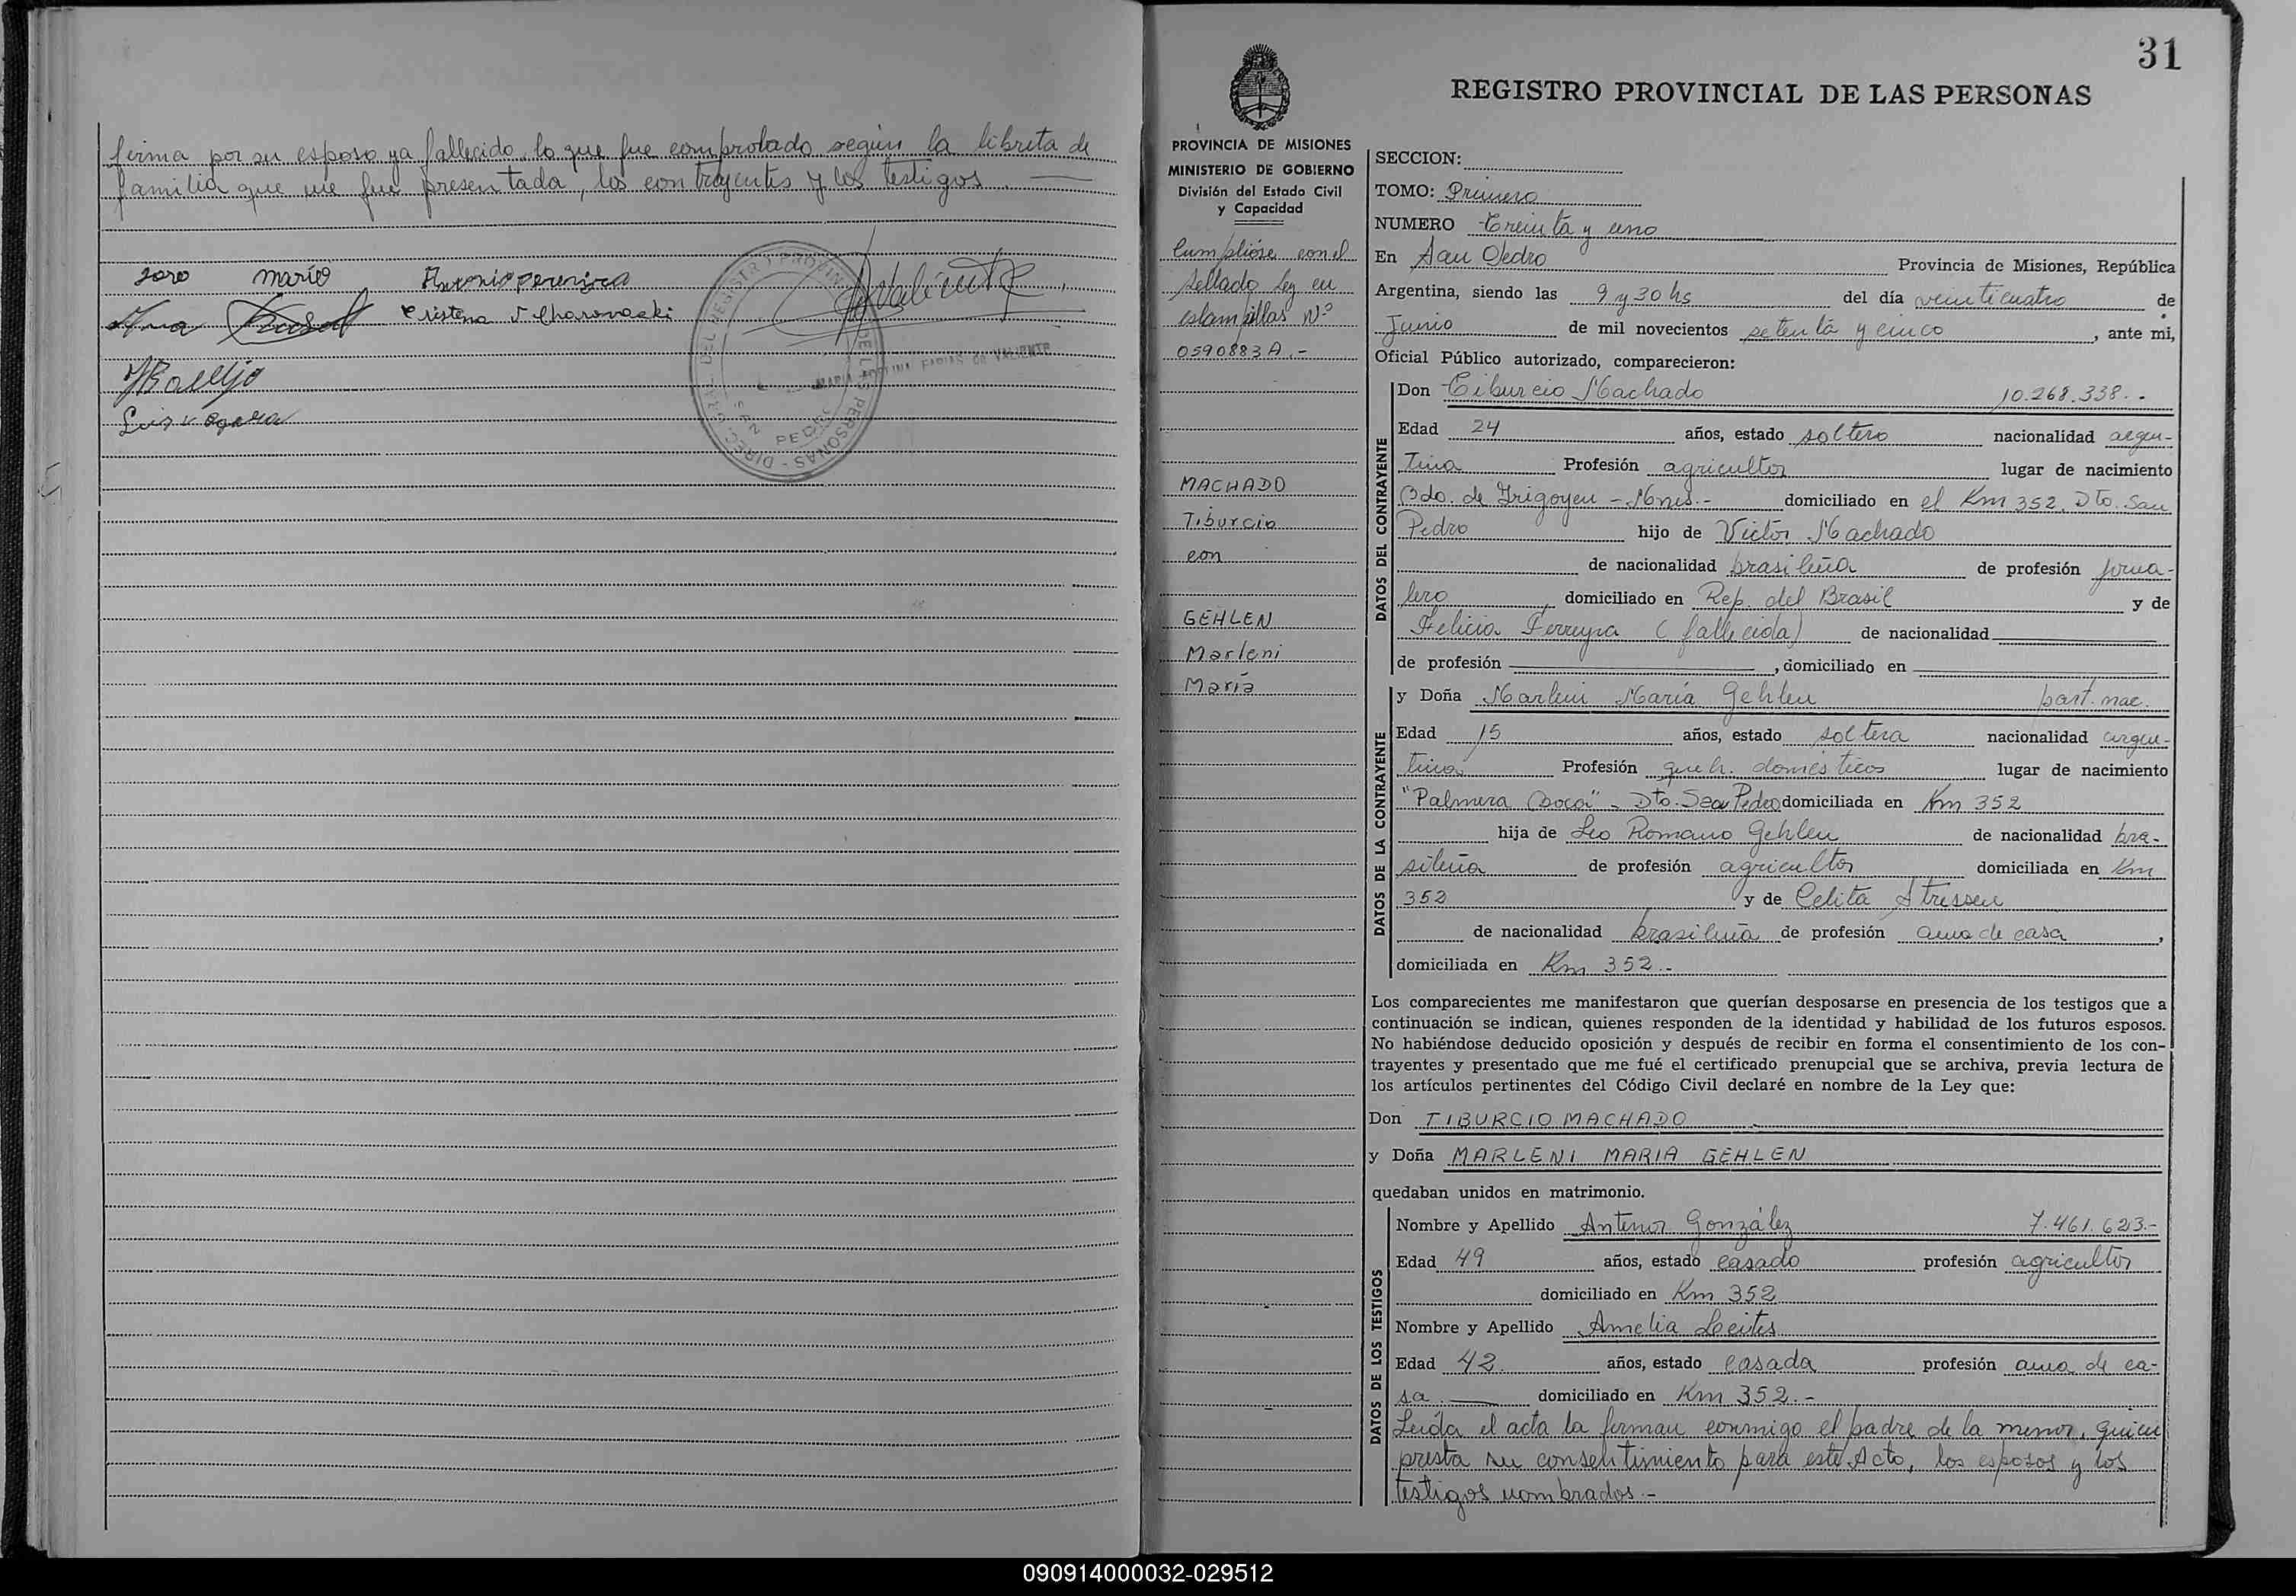 firma por su esposo ya fallecido, lo que fue comprobado según la libreta de
familia que me fue presentada, los contrayentes y los testigos.
soro mario Antonio pereyra
Cristina
Luis
DIREC. GRAL. DEL REGISTRO PROVINCIAL DE LAS PERSONAS
SAN PEDRO
FARIAS de VALIENTE
31
REGISTRO PROVINCIAL DE LAS PERSONAS
PROVINCIA DE MISIONES
MINISTERIO DE GOBIERNO
División del Estado Civil
y Capacidad
Cumplióse con el
sellado Ley en
estampillas Nº
0590883A.-
MACHADO
Tiburcio
con
GEHLEN
Marleni
María
SECCION:
TOMO: Primero
NUMERO Treinta y uno
En San Pedro Provincia de Misiones, República
Argentina, siendo las 9 y 30 hs del día veinticuatro de
Junio de mil novecientos setenta y cinco, ante mi,
Oficial Público autorizado, comparecieron:
DATOS DEL CONTRAYENTE
Don Tiburcio Machado 10.268.338.-
Edad 24 años, estado soltero nacionalidad argen-
tina Profesión agricultor lugar de nacimiento
Bdo. de Irigoyen - Mnes.- domiciliado en el Km 352. Dto. San
Pedro hijo de Victor Machado
de nacionalidad brasileña de profesión jorna-
lero, domiciliado en Rep. del Brasil y de
Felicia Ferreyra (fallecida) de nacionalidad
de profesión , domiciliado en
DATOS DE LA CONTRAYENTE
y Doña Marleni María Gehlen part. nac.
Edad 15 años, estado soltera nacionalidad argen-
tina Profesión queh. domésticos lugar de nacimiento
"Palmera Boca" - Dto. San Pedro domiciliada en Km 352
hija de Leo Romano Gehlen de nacionalidad bra-
sileña de profesión agricultor domiciliada en Km
352 y de Celita Stressen
de nacionalidad brasileña de profesión ama de casa,
domiciliada en Km 352.-
Los comparecientes me manifestaron que querían desposarse en presencia de los testigos que a
continuación se indican, quienes responden de la identidad y habilidad de los futuros esposos.
No habiéndose deducido oposición y después de recibir en forma el consentimiento de los con-
trayentes y presentado que me fué el certificado prenupcial que se archiva, previa lectura de
los artículos pertinentes del Código Civil declaré en nombre de la Ley que:
Don TIBURCIO MACHADO
y Doña MARLENI MARIA GEHLEN
quedaban unidos en matrimonio.
DATOS DE LOS TESTIGOS
Nombre y Apellido Antenor González 7.461.623.-
Edad 49 años, estado casado profesión agricultor
domiciliado en Km 352
Nombre y Apellido Amelia Leites
Edad 42. años, estado casada profesión ama de ca-
sa. domiciliado en Km 352.-
Leída el acta la firman conmigo el padre de la menor, quien
presta su consentimiento para este Acto, los esposos y los
testigos nombrados.-
090914000032-029512